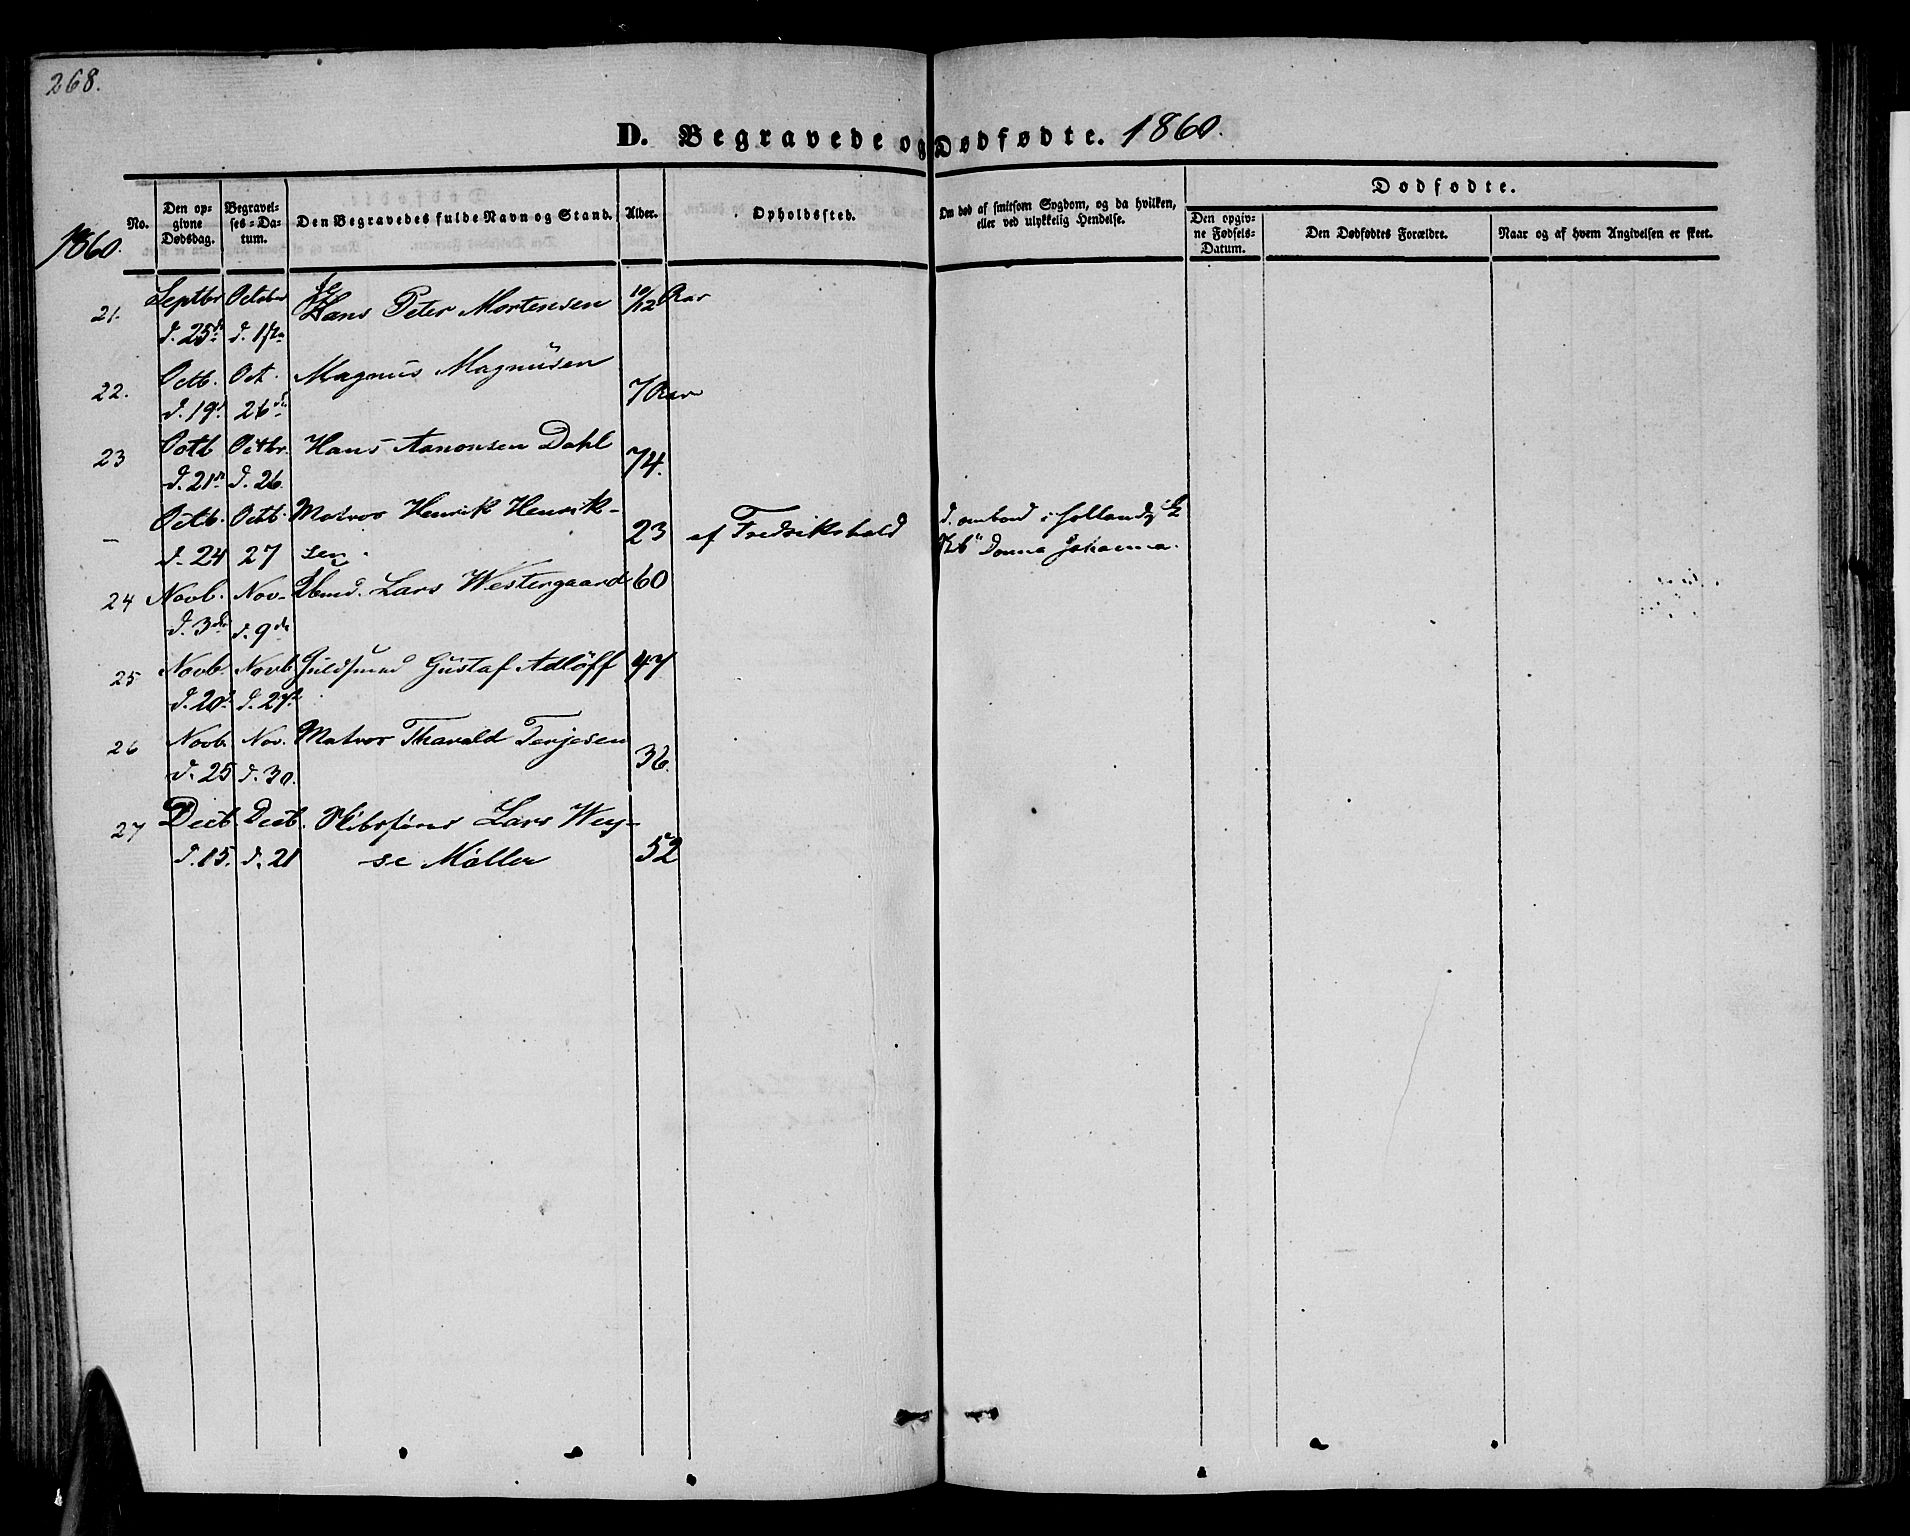 268.
D. Begravede og Dødfødte. 1860.
No.
Den opgivne Dødsdag.
Begravelses-Datum.
Den Begravedes fulde Navn og Stand.
Alder.
Opholdssted.
Om død af smitsom Sygdom, og da hvilken, eller ved ulykkelig Hendelse.
Dødfødte.
Den opgivne Fødsels-Datum.
Den Dødfødtes Forældre.
Naar og af hvem Angivelsen er skeet.
1860.
21. Septbr October Hans Peter Mortensen 10/12 Aar
d. 25 d. 1
22. Octb. Oct. Magnus Magnusen 7 Aar
d. 19 26
23 Octb Octbr. Hans Aanonsen Dahl 74.
d. 21 d. 26.
- Octb. Octb. Matros Henrik Henrik- 23 af Fredrikshald d. ombord i hollandsk
d. 24 27 sen. "Donna Johanna.
24 Novb. Nov. Lars Westergaard 60
d. 3 d. 9
25 Novb. Novb. Guldsmed Gustaf Adlöff 47
d. 20 d. 27
26 Novb. Nov. Matros Tharald Terjesen 36.
d. 25 d. 30.
27 Decb. Decb. Skibsfører Lars Wey-
d. 15. d. 21 se Møller 52